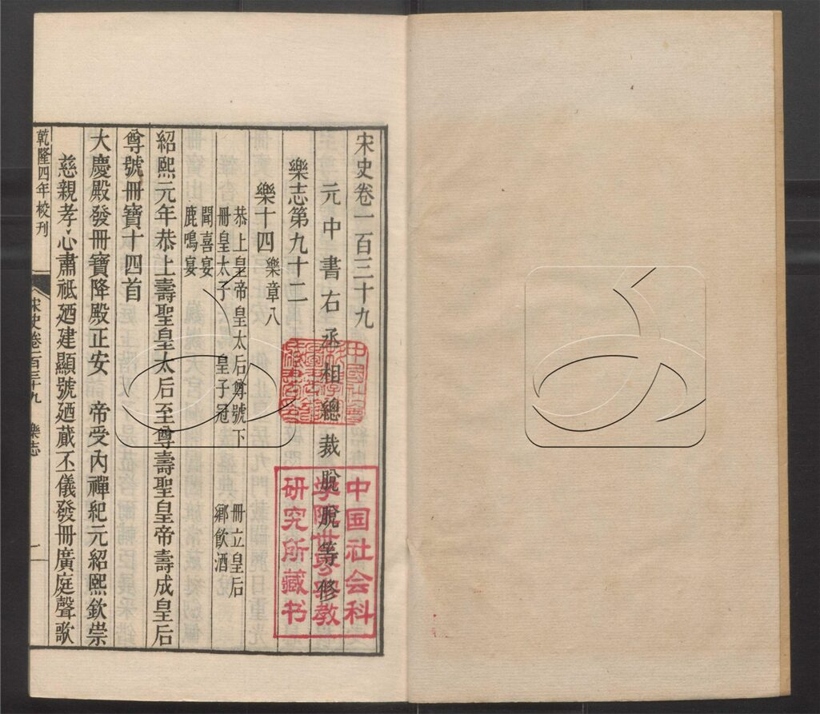 宋史卷一百三十九
元中書右丞相總裁脫脫等修
樂志第九十二
樂十四 樂章八
恭上皇帝皇太后尊號下 冊立皇后
冊皇太子 皇子冠 鄉飲酒
聞喜宴
鹿鳴宴
紹熙元年恭上壽聖皇太后至尊壽聖皇帝壽成皇后
尊號冊寶十四首
大慶殿發冊寶降殿正安 帝受內禪紀元紹熙欽崇
慈親孝心肅祗廼建顯號廼蕆丕儀發冊廣庭聲歌
乾隆四年校刊
宋史卷一百三十九 樂志 一
中国社会科
学院世界宗教
研究所藏书